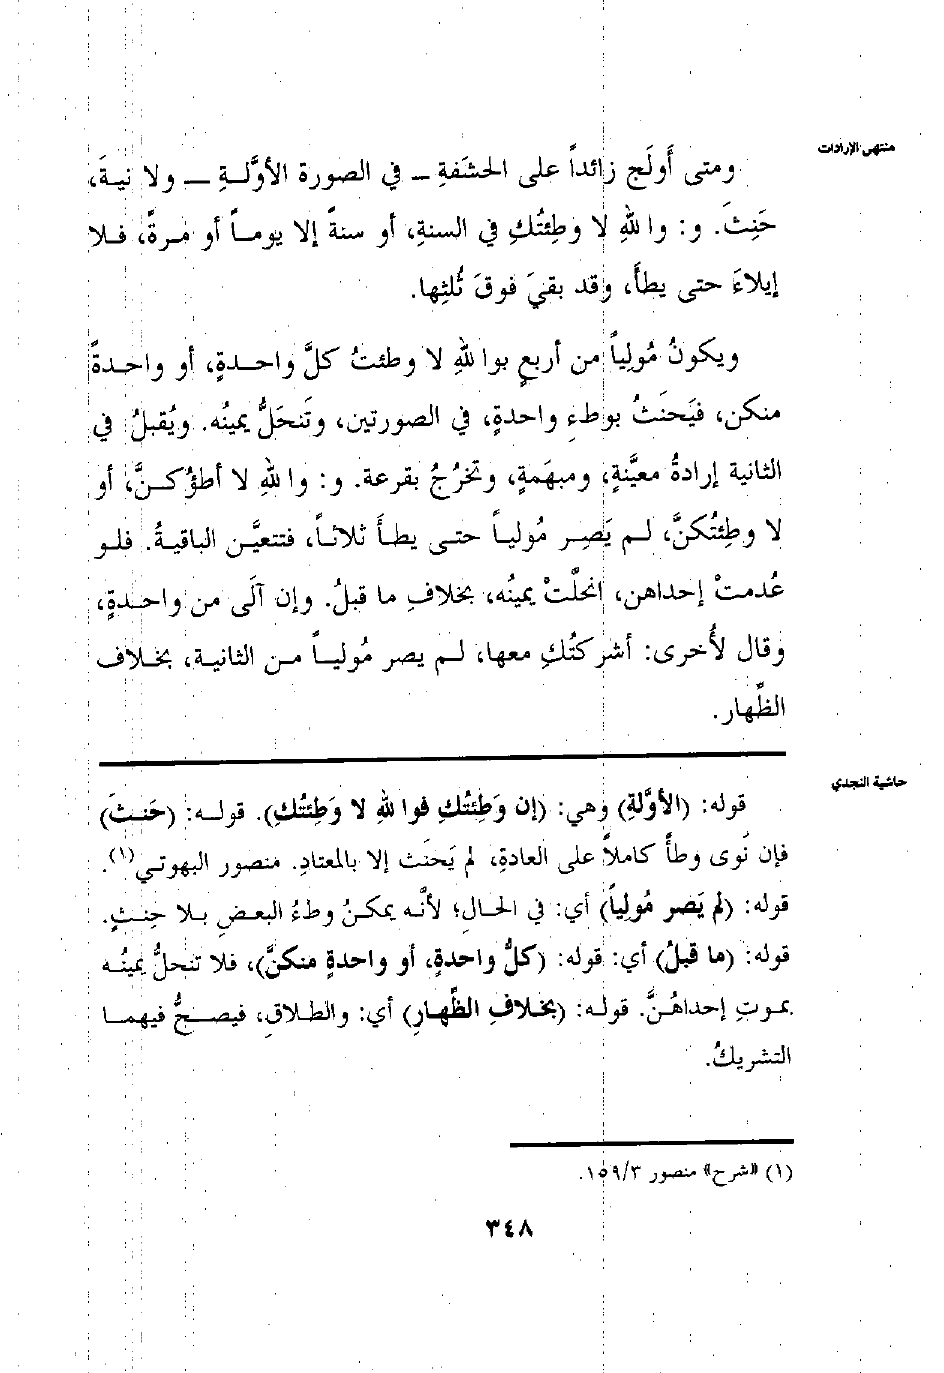 منتهى الإرادات
ومتى أَولَج زائداً على الحشَفةِ – في الصورة الأوَّلةِ – ولا نيةَ،
حَنِثَ. و: واللهِ لا وطِئتُكِ في السنةِ، أو سنةً إلا يوماً أو مرةً، فلا
إيلاءَ حتى يطأَ، وقد بقيَ فوقَ ثُلثِها.
ويكونُ مُولِياً من أربعٍ بواللهِ لا وطئتُ كلَّ واحدةٍ، أو واحدةً
منكن، فيَحنَثُ بوطءِ واحدةٍ، في الصورتين، وتَنحَلُّ يمينُه. ويُقبلُ في
الثانية إرادةُ معيَّنةٍ، ومبهَمةٍ، وتخرُجُ بقرعة. و: واللهِ لا أطؤُكنَّ، أو
لا وطِئتُكنَّ، لم يَصِر مُولياً حتى يطأَ ثلاثاً، فتتعيَّن الباقيةُ. فلو
عُدمتْ إحداهن، انحلَّتْ يمينُه، بخلافِ ما قبلُ. وإن آلَى من واحدةٍ،
وقال لأُخرى: أشركتُكِ معها، لم يصر مُولياً من الثانية، بخلاف
الظِّهار.
حاشية النجدي
قوله: (الأوَّلةِ) وهي: (إن وَطِئتُكِ فواللهِ لا وَطِئتُكِ). قوله: (حَنثَ)
فإن نَوى وطأً كاملاً على العادةِ، لم يَحنَث إلا بالمعتادِ. منصور البهوتي(١).
قوله: (لم يَصر مُولِياً) أي: في الحالِ؛ لأنَّه يمكنُ وطءُ البعضِ بلا حِنثٍ.
قوله: (ما قبلُ) أي: قوله: (كلُّ واحدةٍ، أو واحدةٍ منكنَّ)، فلا تنحلُّ يمينُه
بموتِ إحداهُنَّ. قوله: (بخلافِ الظِّهارِ) أي: والطلاقِ، فيصحُّ فيهما
التشريكُ.
(١) «شرح» منصور ١٥٩/٣.
٣٤٨